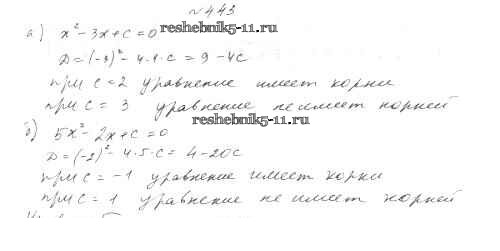 №443
а) x² - 3x + c = 0
reshebnik5-11.ru
D = (-3)² - 4·1·c = 9 - 4c
при c = 2 уравнение имеет корни
при c = 3 уравнение не имеет корней
reshebnik5-11.ru
б) 5x² - 2x + c = 0
D = (-2)² - 4·5·c = 4 - 20c
при c = -1 уравнение имеет корни
при c = 1 уравнение не имеет корней